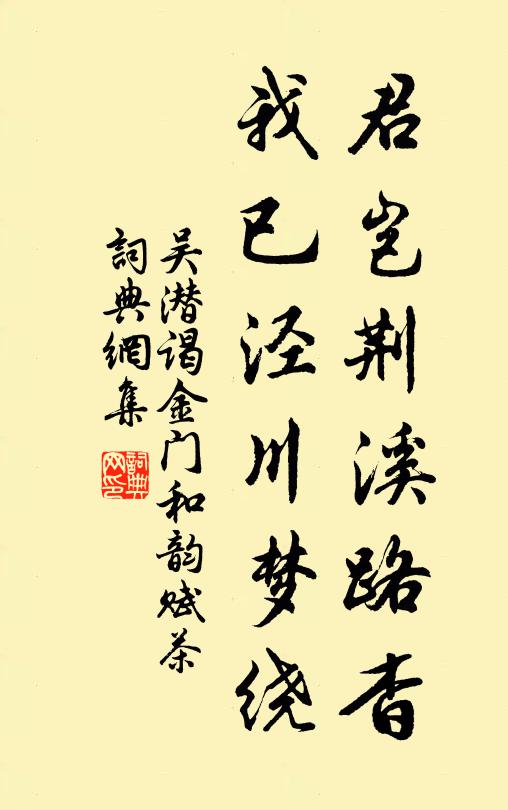 君岂荆溪路杳
我已泾川梦绕
吴潜谒金门和韵赋茶
詞典網集
詞典网印